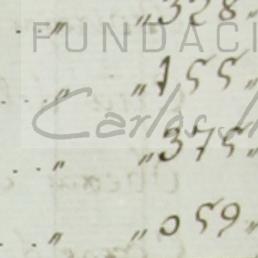 .. " " 328 "
FUNDACI
... " " 155 "
Carlos
... " " 375 "
.. " " 059 "